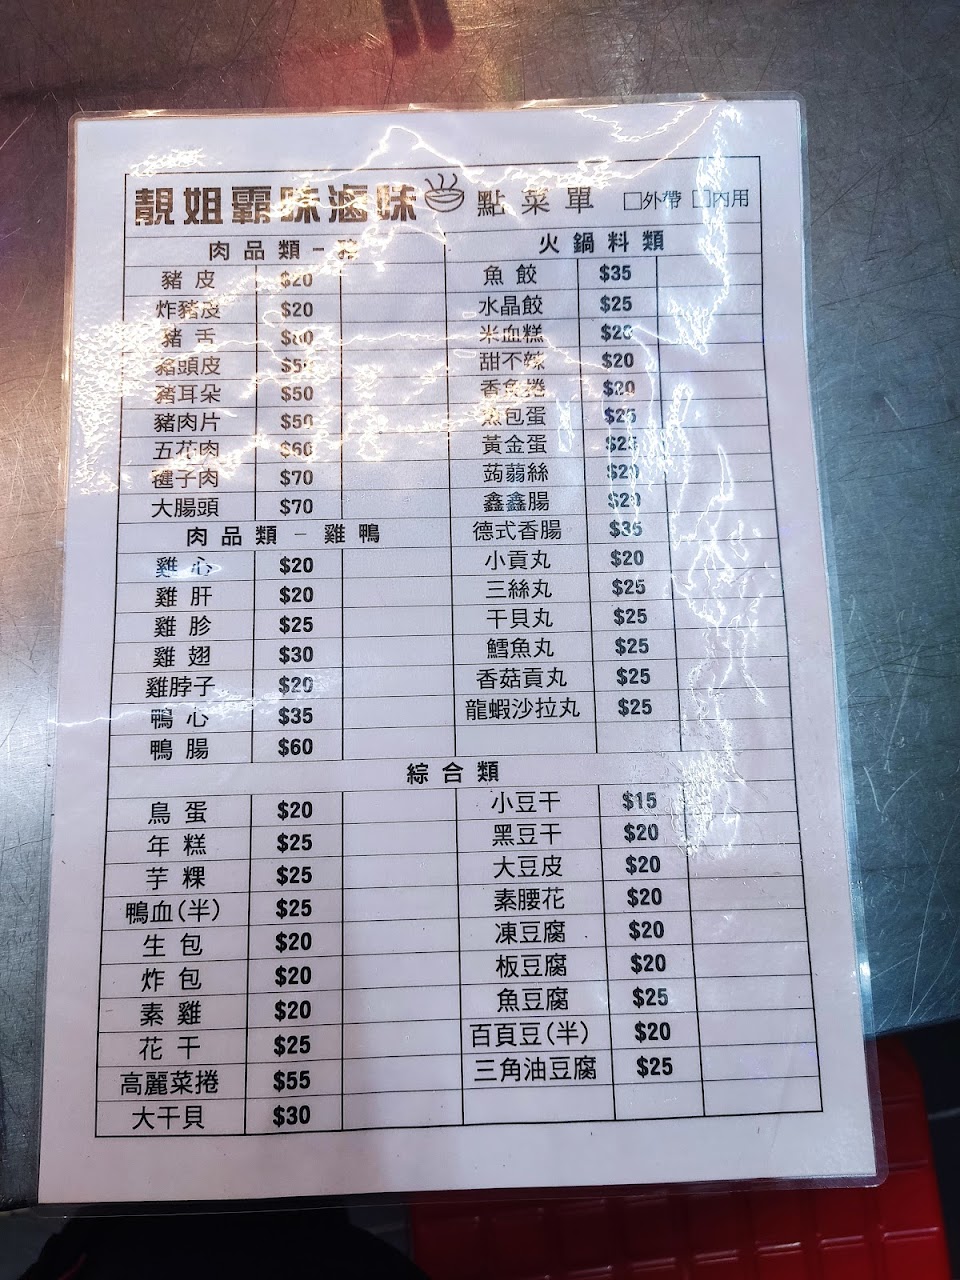 靚姐霸味滷味 點菜單 □外帶 □內用
肉品類-豬
豬皮 $20
炸豬皮 $20
豬舌 $80
豬頭皮
豬耳朵 $50
豬肉片 $50
五花肉 $60
毽子肉 $70
大腸頭 $70
肉品類-雞鴨
雞心 $20
雞肝 $20
雞胗 $25
雞翅 $30
雞脖子 $20
鴨心 $35
鴨腸 $60
火鍋料類
魚餃 $35
水晶餃 $25
米血糕 $20
甜不辣 $20
香魚捲 $20
魚包蛋 $25
黃金蛋 $25
蒟蒻絲 $20
鑫鑫腸 $20
德式香腸 $35
小貢丸 $20
三絲丸 $25
干貝丸 $25
鱈魚丸 $25
香菇貢丸 $25
龍蝦沙拉丸 $25
綜合類
鳥蛋 $20
年糕 $25
芋粿 $25
鴨血(半) $25
生包 $20
炸包 $20
素雞 $20
花干 $25
高麗菜捲 $55
大干貝 $30
小豆干 $15
黑豆干 $20
大豆皮 $20
素腰花 $20
凍豆腐 $20
板豆腐 $20
魚豆腐 $25
百頁豆(半) $20
三角油豆腐 $25